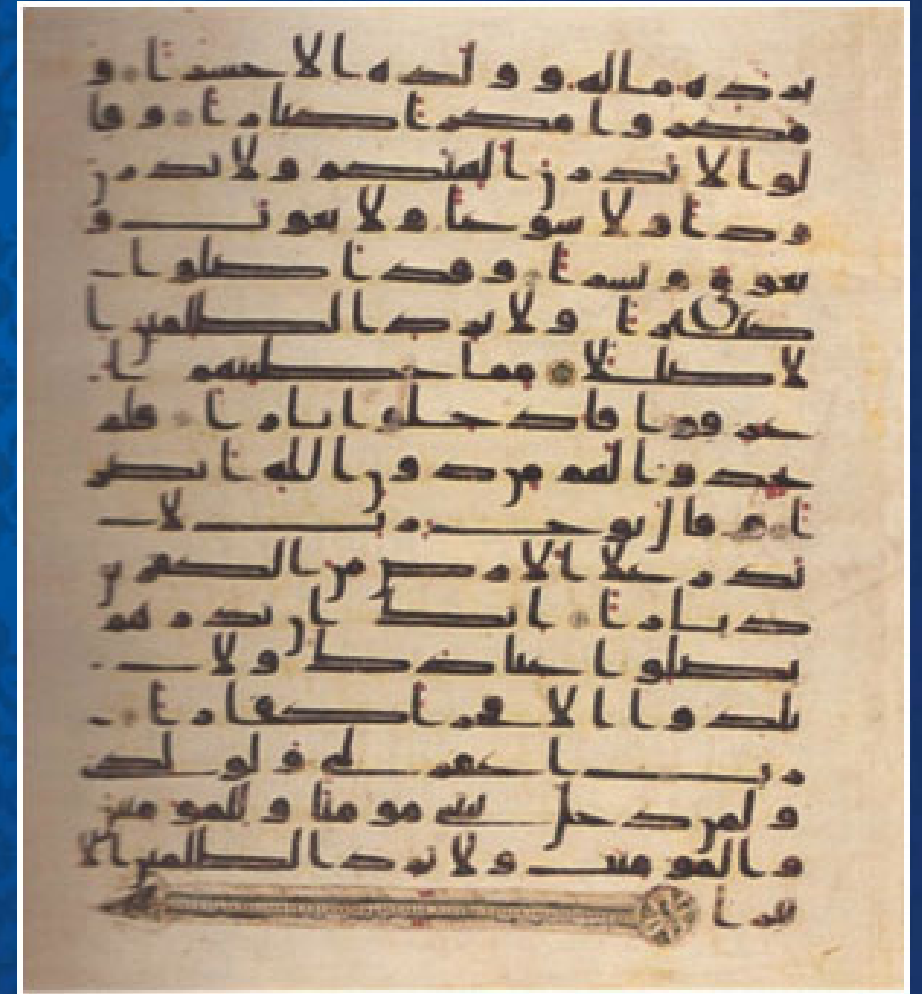 يزده ماله وولده الا خسارا و
مكروا مكرا كبارا وقا
لوا لا تذرن الهتكم ولا تذرن
ودا ولا سوعا ولا يغوث و
يعوق ونسرا وقد اضلوا
كثيرا ولا تزد الظلمين ا
لا ضللا مما خطيتهم ا
غرقوا فادخلوا نارا فلم
يجدوا لهم من دون الله انصا
را وقال نوح رب لا
تذر علا الارض من الكفرين
ديارا انك ان تذرهم
يضلوا عبادك ولا
يلدوا الا فاجرا كفارا
رب اغفر لي ولولدي
ولمن دخل بيتي مومنا وللمومنين
والمومنت ولا تزد الظلمين الا
تبارا